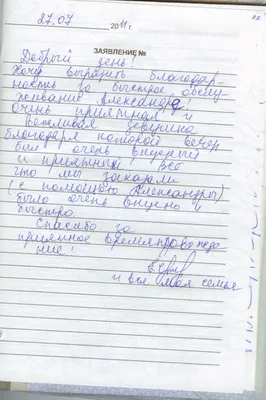 27.07 2011г.
ЗАЯВЛЕНИЕ №
Добрый день!
Хочу выразить благодар-
ность за быстрое обслу-
живание Александре!
Очень приятная и
вежливая девушка
благодаря которой вечер
был очень вкусный
и приятный! Всё
что мы заказали
(с помощью Александры)
было очень вкусно и
быстро.
Спасибо за
приятное времяпровожде-
ние!
и вся моя семья